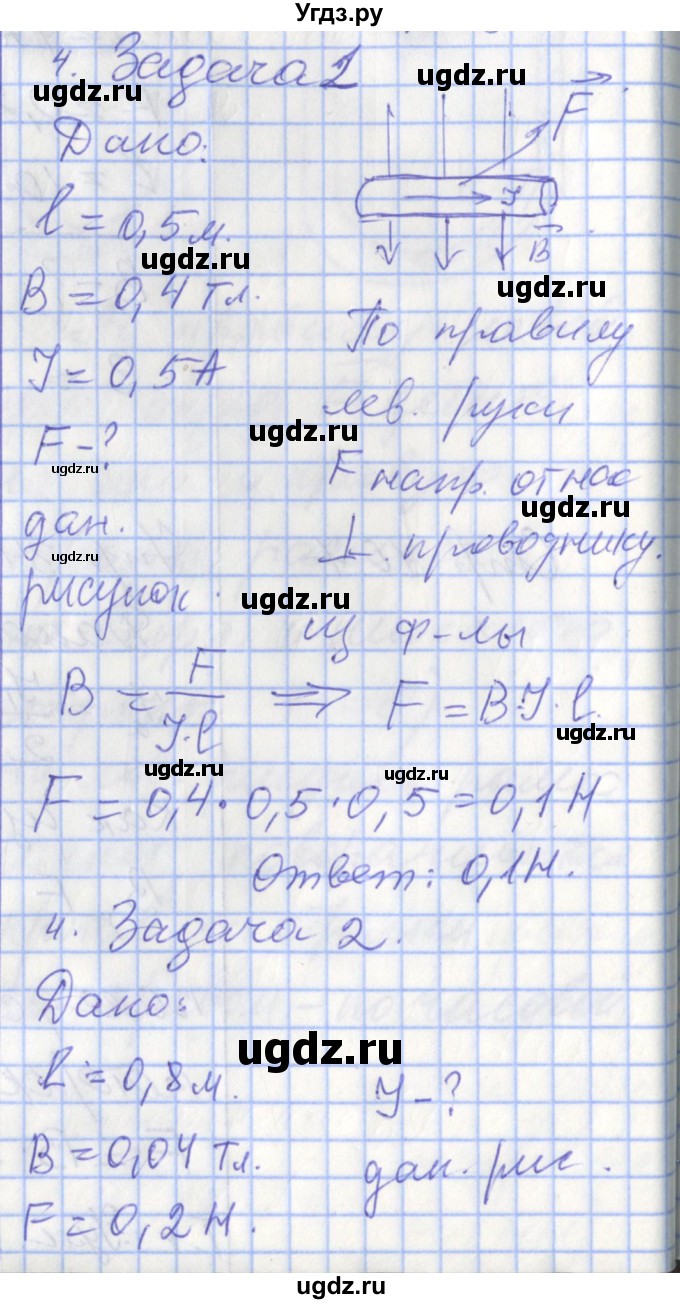 Угдз.ру
4. Задача 1
Дано:
F
l = 0,5 м.
I
B
B = 0,4 Тл.
По правилу
I = 0,5 А
лев. руки
F - ?
F напр. от нас
дан.
⊥ проводнику.
рисунок.
Из ф-лы
B = F / I·l ⇒ F = B·I·l.
F = 0,4·0,5·0,5 = 0,1 Н
Ответ: 0,1 Н.
4. Задача 2.
Дано:
l = 0,8 м.
I - ?
B = 0,04 Тл.
дан. рис.
F = 0,2 Н.
ugdz.ru
ugdz.ru
ugdz.ru
ugdz.ru
ugdz.ru
ugdz.ru
ugdz.ru
ugdz.ru
ugdz.ru
ugdz.ru
ugdz.ru
ugdz.ru
ugdz.ru
ugdz.ru